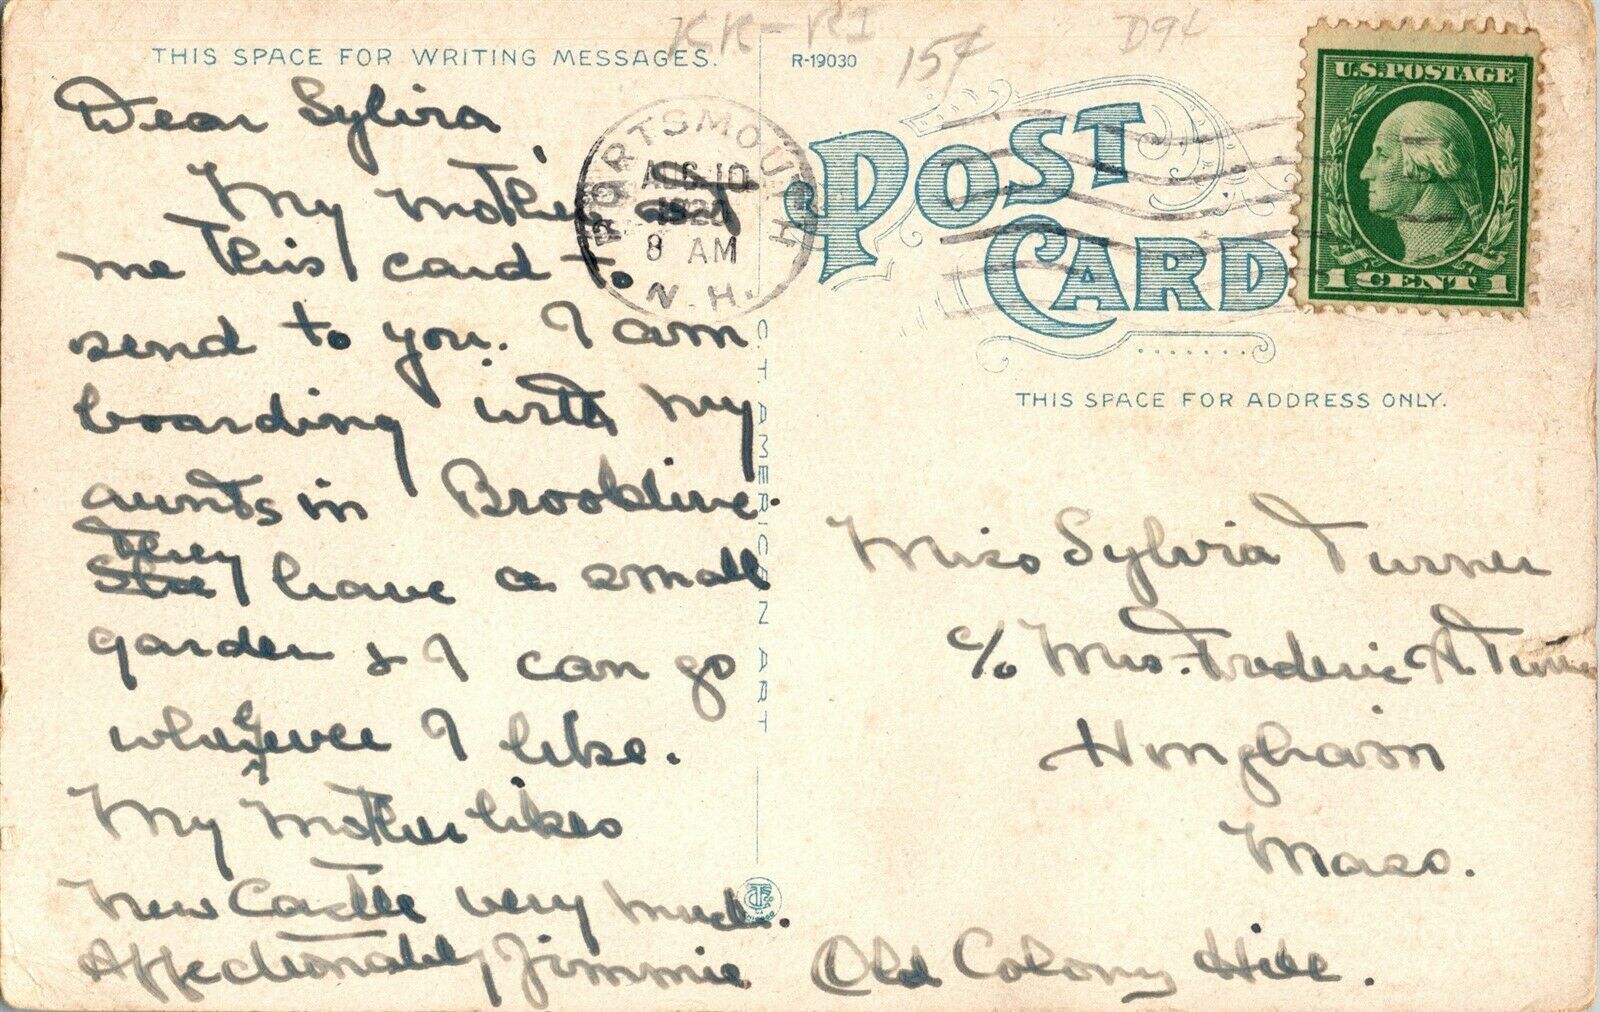 KK-RI
15¢
D9¢
THIS SPACE FOR WRITING MESSAGES.
R-19030
POST
CARD
U.S. POSTAGE
1 CENT 1
PORTSMOUTH
AUG 10
1920
8 AM
N.H.
Dear Sylvia
My mother
me this card to
send to you. I am
boarding with my
aunts in Brookline.
they
She have a small
garden & I can go
wherever I like.
My mother likes
New Castle very much.
Affectionately, Jimmie
C.T. AMERICAN ART
THIS SPACE FOR ADDRESS ONLY.
Miss Sylvia Turner
c/o Mrs. Frederic A. Turner
Hingham
Mass.
Old Colony Hill.